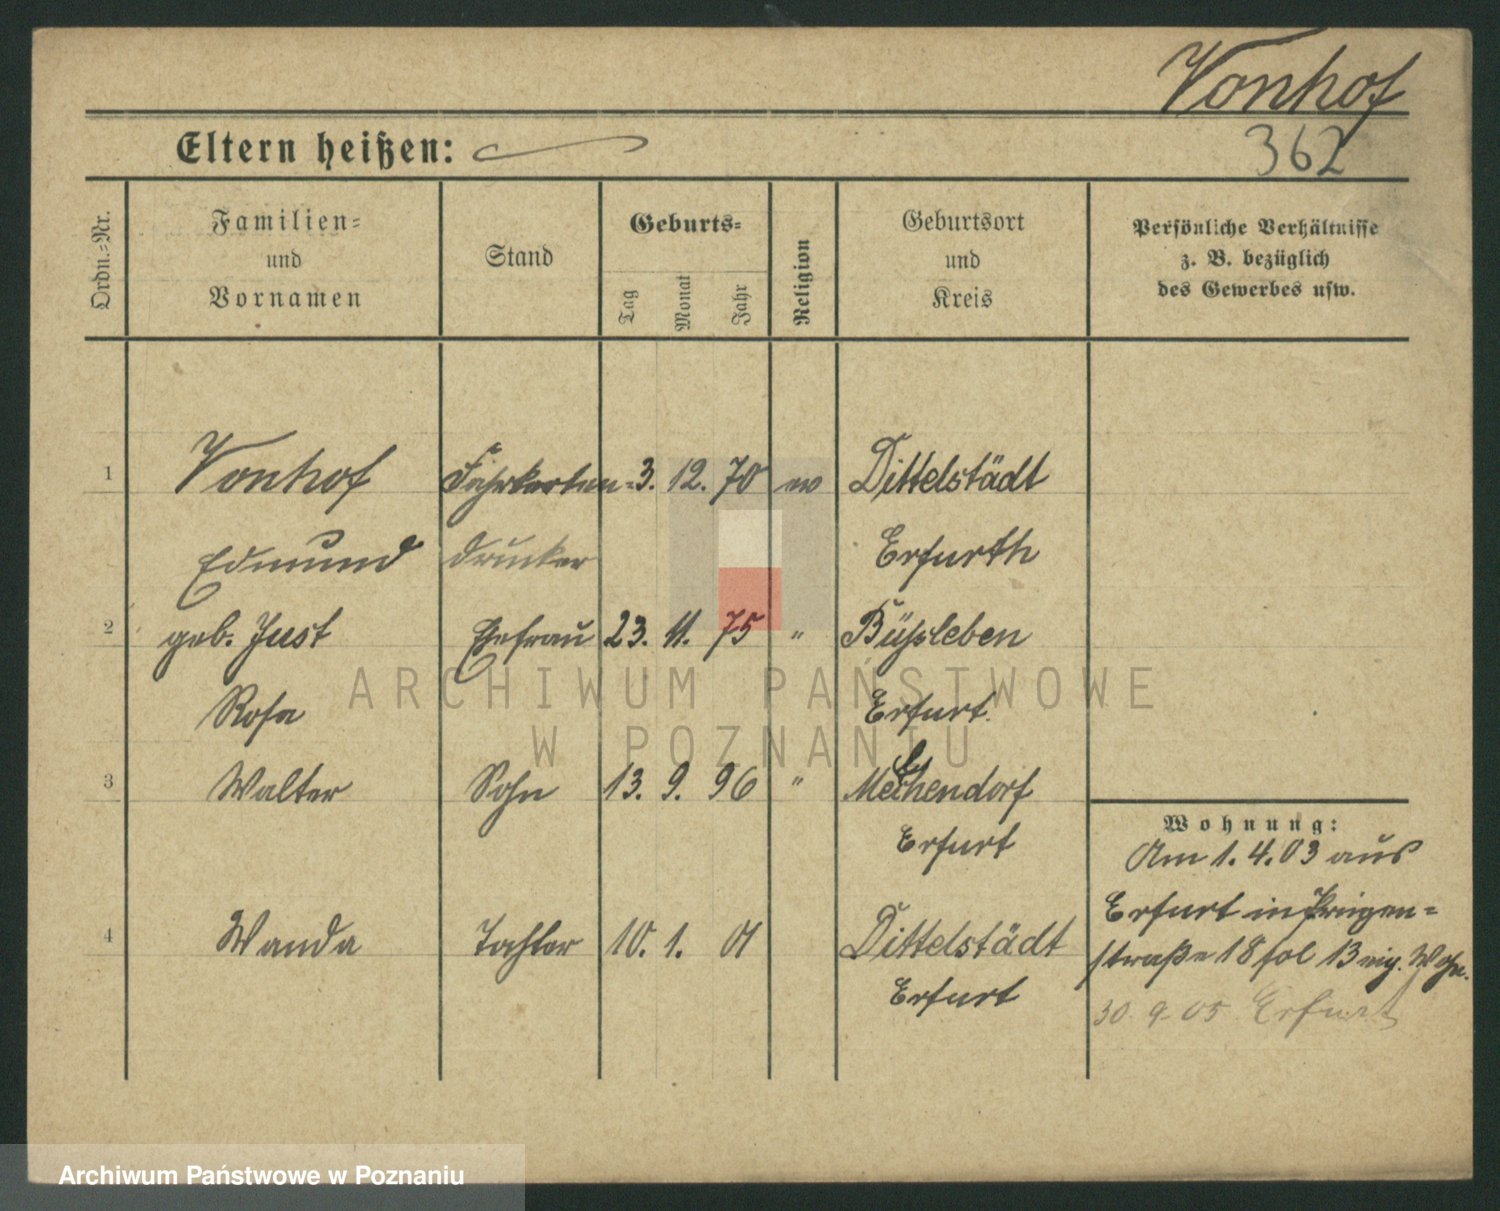 Vonhof
Eltern heißen:
362
Ordn.-Nr.
Familien-
und
Vornamen
Stand
Geburts-
Tag
Monat
Jahr
Religion
Geburtsort
und
Kreis
Persönliche Verhältnisse
z. B. bezüglich
des Gewerbes usw.
1 Vonhof Fahrkarten- 3. 12. 70 ev Dittelstädt
Edmund drucker Erfurth
2 geb. Just Ehefrau 23. 11. 75 " Büßleben
Rosa Erfurt.
3 Walter Sohn 13. 9. 96 "
Erfurt
4 Wanda Tochter 10. 1. 01 Dittelstädt
Erfurt
Wohnung:
Am 1.4.03 aus
Erfurt in
straße 18 bei 13 eig. Wohn.
30. 9. 05 Erfurt
ARCHIWUM PAŃSTWOWE
W POZNANIU
Archiwum Państwowe w Poznaniu